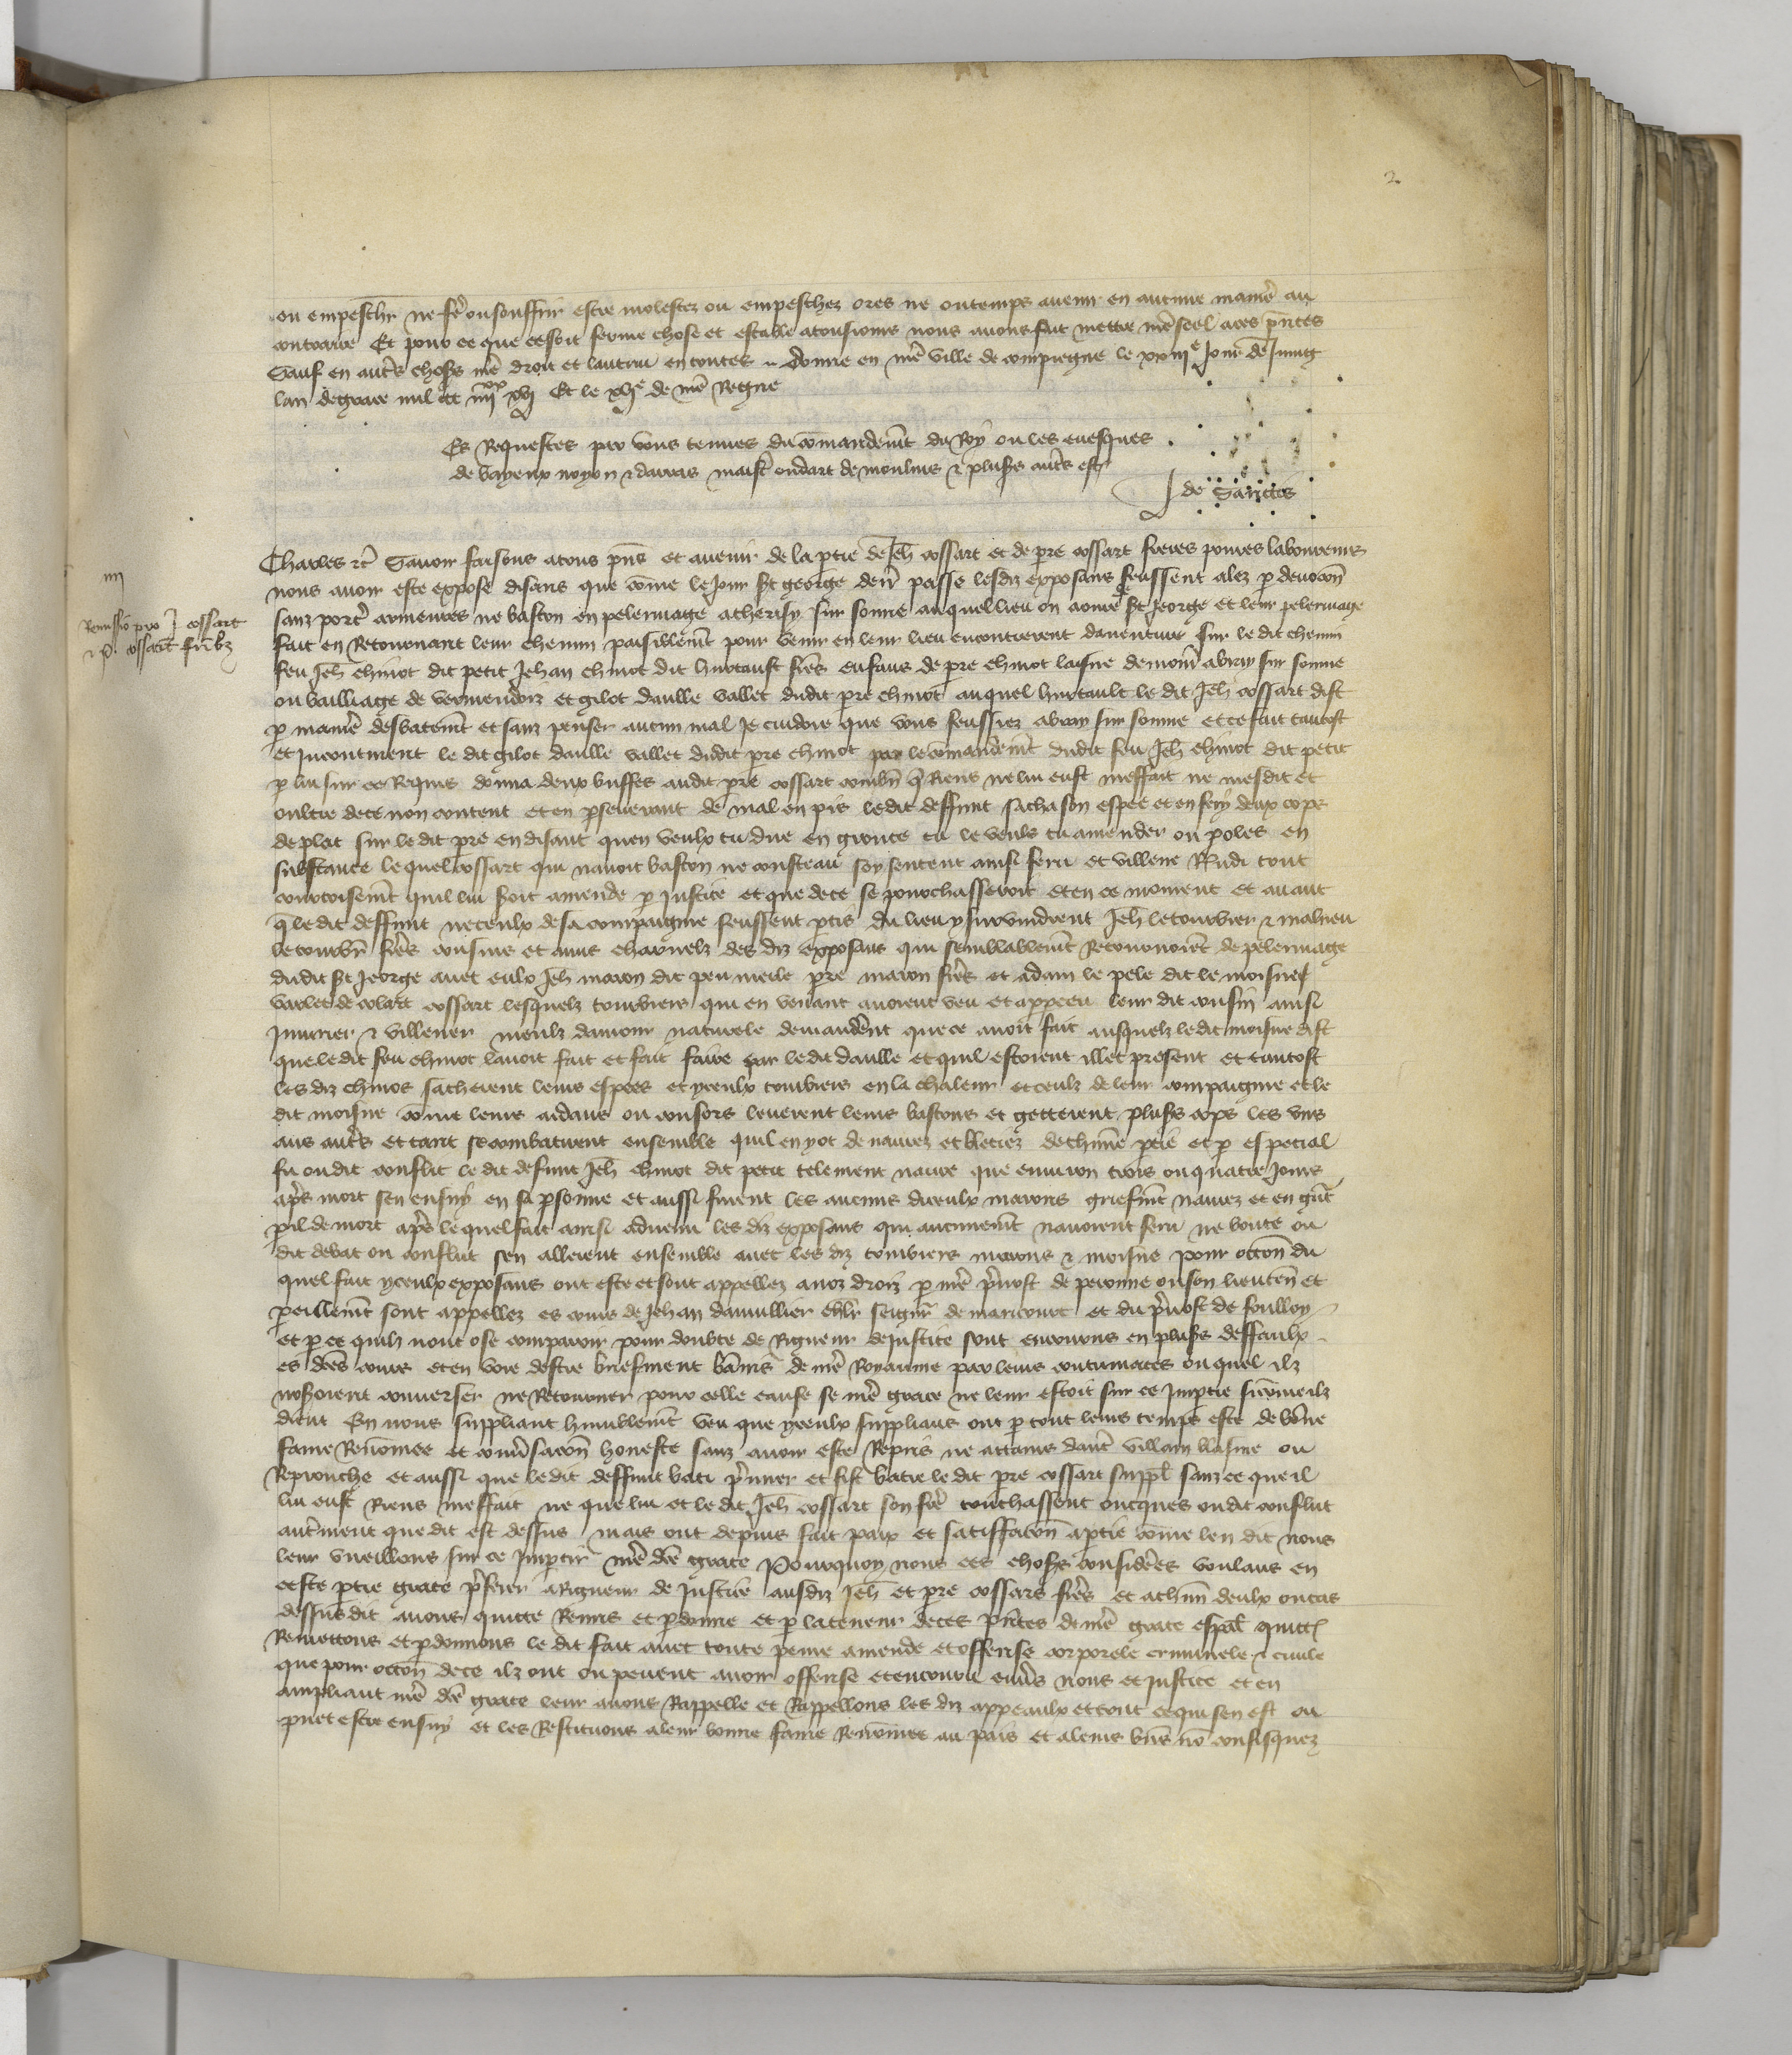 2
ou empeschr ne fe ou souffrir estre molestez ou empeschez ores ne ou temps avenir en aucune maniere au
contraire Et pour ce que ce soit ferme chose et estable a tousiours nous avons fait mettre nre seel a ces pntes
Sauf en autrs choses nre droit et lautrui en toutes Donne en nre ville de compiegne le xxiiie jour de Juing
lan de grace mil ccc iiiixx xvj Et le xvje de nre Regne
Es Requestes par vous tenues du comandemt du Roy ou les evesques
de bayeux noyon & darras maistre oudart de moulins & plusrs autrs est
J de Sanctes
iiii
Remissio pro J cossart
& P. cossart fribz
Charles &c Savoir faisons a tous pns et avenir de la ptie de Jeh cossart et de pre cossart freres povres laboureurs
nous avoir este expose disans que come le Jour st george derr passe lesdiz exposans feussent alez p devocon
sanz porter armeures ne baston en pelerinage a cherisy sur somme au quel lieu on aoure st Jeorge et leur pelerinage
fait en Retournant leur chemin paisiblemt pour venir en leur lieu encontrerent daventure sur le dit chemin
feu Jeh chinot dit petit Jehan chinot dit hurtault frers enfans de pre chinot laisne de moni abray sur somme
ou bailliage de vermendoiz et gilot daulle vallet dudit pre chinot au quel hurtault le dit Jeh cossart dist
p maniere desbatemt et sanz penser aucun mal Je cuidoie que vous feussiez abray sur somme et ce fait tantost
et Incontinent le dit gilot daulle vallet dudit pre chinot par le comandemt dudit feu Jeh chinot dit petit
p lui sur ce Requis donna deux buffes audit pre cossart combn q Riens ne lui eust meffait ne mesdit et
oultre de ce non content et en pseverant de mal en pis ledit deffunt sacha son espee et en feri deux cops
de plat sur le dit pre en disant quen veulx tu due en grouce tu le veuls tu amender ou poles en
substance le quel cossart qui navoit baston ne cousteau soy sentent ainsi feru et villene Rndi tout
courtoisemt quil lui soit amende p Justice et que de ce se pourchasseroit et en ce moment et avant
q le dit deffunt ne ceulx de sa compaignie feussent ptis du lieu y survindrent Jeh le tourbier & mahieu
le tourbr frers cousins et amis charnelz des diz exposans qui semblablemt Retournoient de pelerinage
dudit st Jeorge avec eulx Jeh maron dit peu meile pre maron frers et adam le pele dit le moisne
varlet de colart cossart lesquelz tourbiers qui en venant avoient veu et apperceu leur dit cousin ainsi
Iniurier & villener meuz damour naturele demanderent que ce avoit fait ausquelz le dit moisne dist
que le dit feu chinot lavoit fait et fait faire par le dit daulle et quil estoient illec present et tantost
les diz chinos sacherent leurs espees et yceulx tourbiers en la chaleur et ceulz de leur compaignie et le
dit moisne come leurs aidans ou consors leverent leurs bastons et getterent plusrs cops les uns
aus autrs et tant se combatirent ensemble quil en y ot de navrez et bleciez de chune ptie et p especial
fu ou dit conflit le dit defunt Jeh chinot dit petit telement navre que environ trois ou quatre Jours
aprs mort sen ensuy en sa psonne et aussi furent les aucuns diceulx marons griefmt navrez et en gnt
pil de mort aprs le quel fait ainsi advenu les diz exposans qui aucunemt navoient feru ne boute ou
dit debat ou conflict sen allerent ensemble avec les diz tourbiers marons & moisne pour occon du
quel fait yceulx exposans ont este et sont appellez a noz droiz p nre prevost de peronne ou son lieuten et
peillemt sont appellez es cours de Jehan damillier chlr seignr de marcourt et du prevost de foulloy
et p ce quilz nont ose comparoir pour doubte de Rigueur de Justice sont encourus en plusrs deffaulx
es dces cours et en voie destre briefment bannis de nre Royaume par leurs contumaces ou quel ilz
noseroient converser ne Retourner pour celle cause se nre grace ne leur estoit sur ce Imptie si come ilz
dient En nous suppliant humblemt veu que yceulx supplians ont p tout leurs temps este de bonne
fame Renomee et conversacon honeste sanz avoir este Repris ne attains dautre villain blasme ou
Reprouche et aussi que le dit deffunt bati primier et fist batre le dit pre cossart suppl sanz ce que il
lui eust Riens meffait ne que lui et le dit Jeh cossart son fre touchassent oncques ou dit conflict
autrement que dit est dessus mais ont depuis fait paix et satisfacon a ptie come len dit nous
leur vueillons sur ce Imptir nre dce grace Pourquoy nous ces choses considerees voulans en
ceste ptie grace prferer a Rigueur de Justice ausdiz Jeh et pre cossars frers et a chun deulx ou cas
dessus dit avons quitte Remis et pdonne et p la teneur de ces pntes de nre grace espal quitt
Remettons et pdonnons le dit fait avec toute peine amende et offense corporele criminele & civile
que pour occon de ce ilz ont ou pevent avoir offense et encouru envers nous et Justice et en
ampliant nre dce grace leur avons Rappelle et Rappellons les diz appeaulx et tout ce qui sen est ou
puet estre ensuy et les Restituons a leur bonne fame Renomee au pais et a leurs bns no confisquez